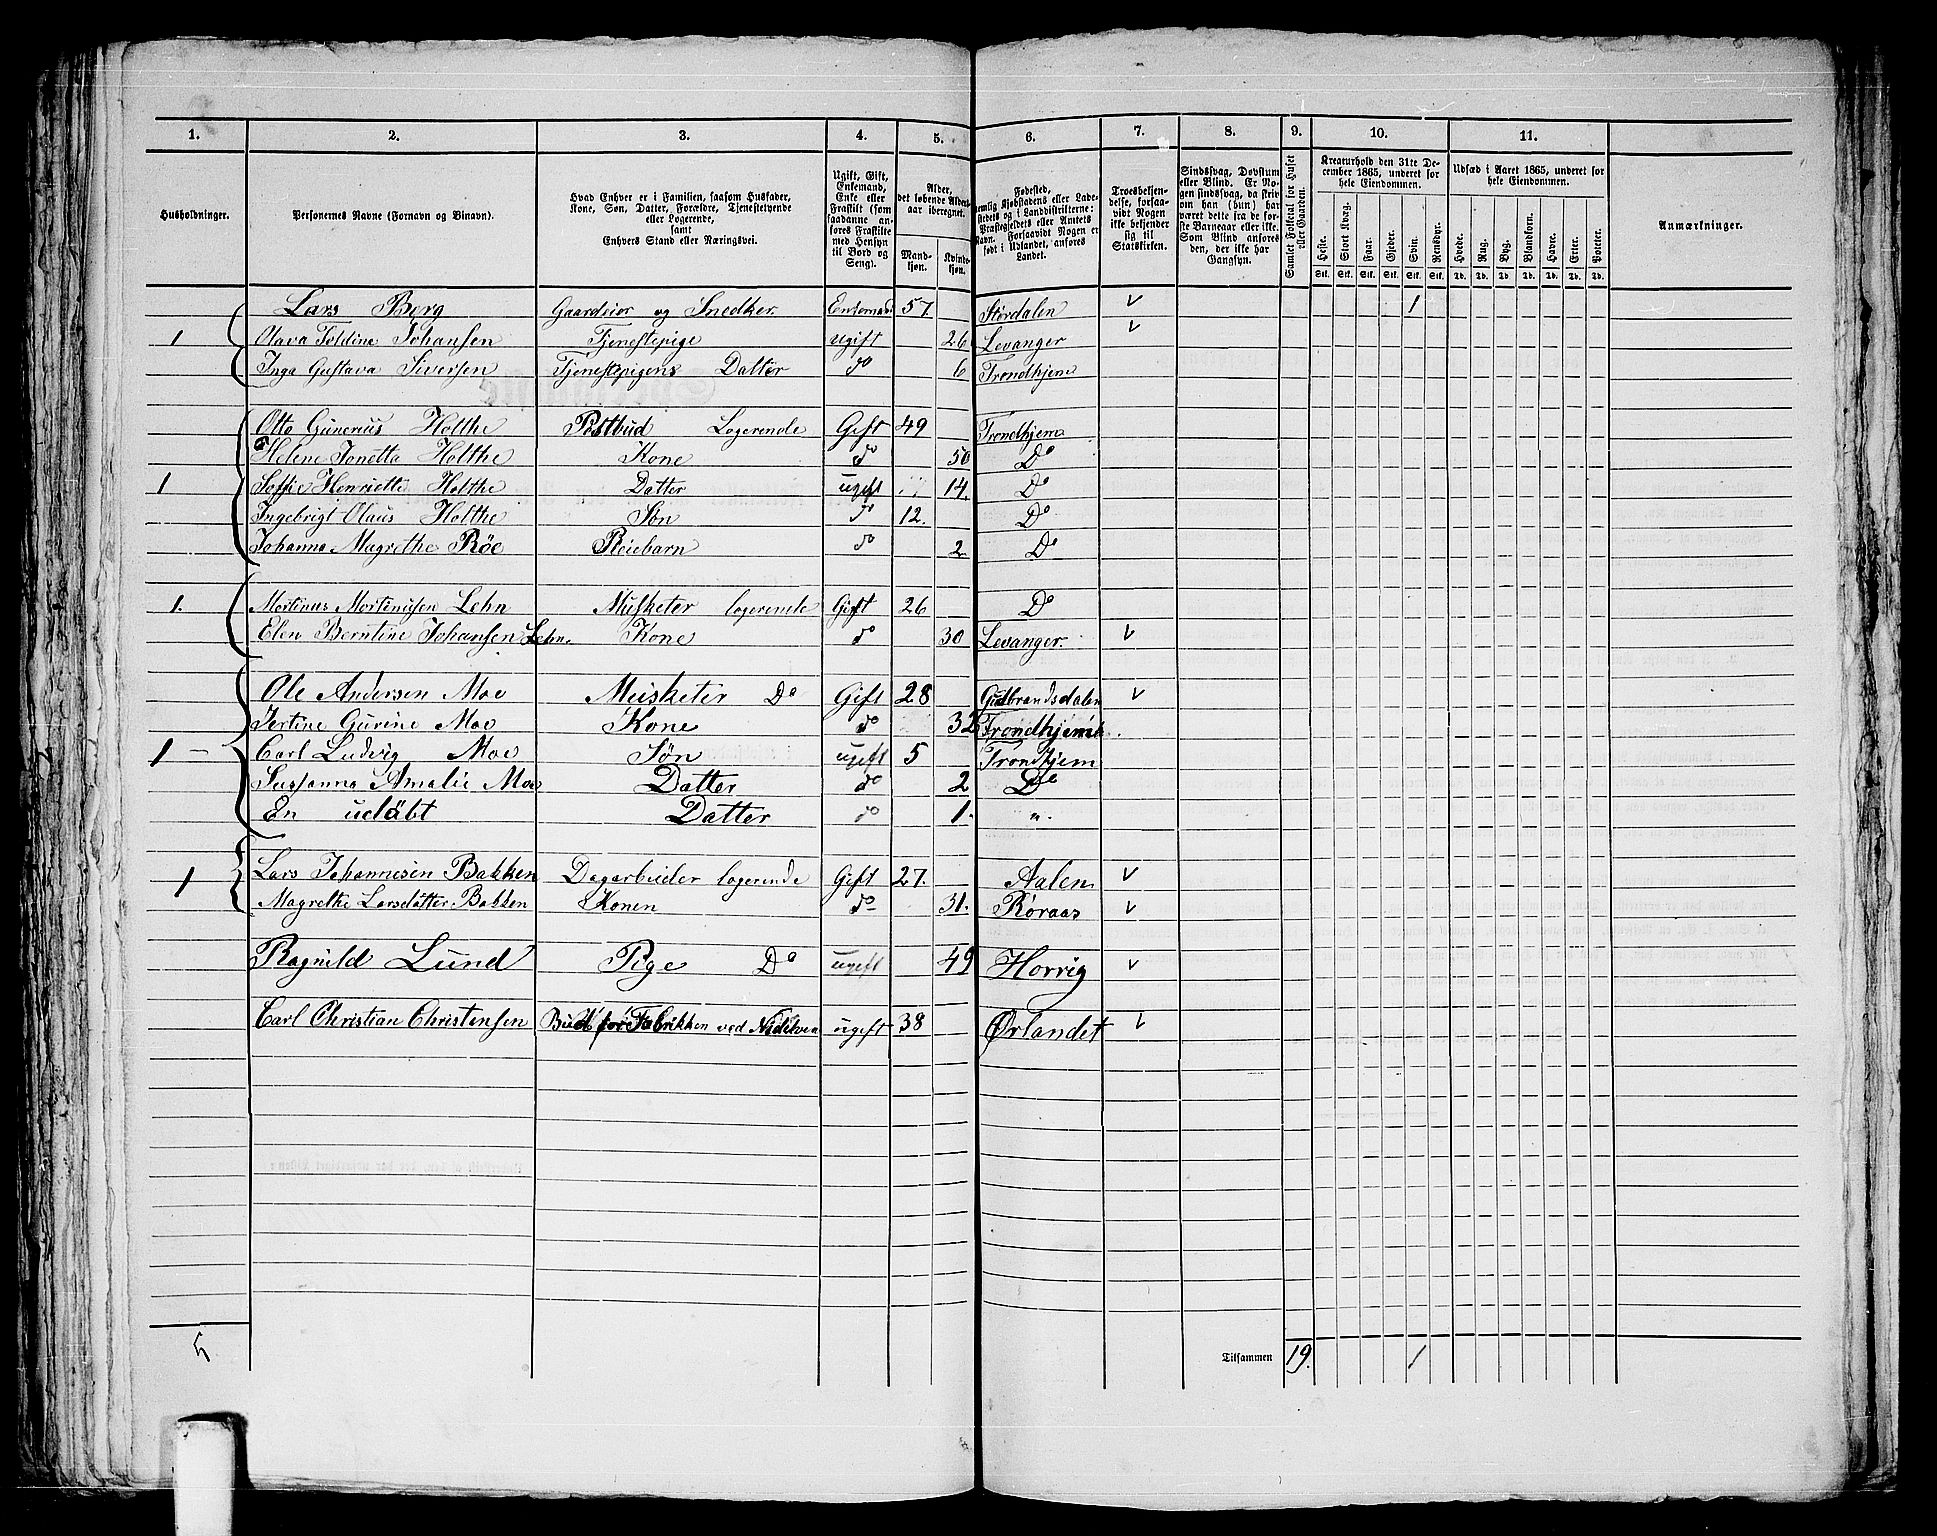 1. 2. 3. 4. 5. 6. 7. 8. 9. 10. 11.
Husholdninger.
Personernes Navne (Fornavn og Binavn).
Hvad Enhver er i Familien, saasom Husfader,
Kone, Søn, Datter, Forældre, Tjenestetyende
eller Logerende,
samt
Enhvers Stand eller Næringsvei.
Ugift, Gift,
Enkemand,
Enke eller
Fraskilt (som
saadanne anføres
Fraskilte
med Hensyn
til Bord og
Seng).
Alder,
det løbende Alders-
aar iberegnet.
Mand-
kjøn.
Kvinde-
kjøn.
Fødested,
nemlig Kjøbstadens eller Lade-
stedets og i Landdistrikterne:
Præstegjeldets eller Amtets
Navn. Forsaavidt Nogen er
født i Udlandet, anføres
Landet.
Troesbekjen-
delse, forsaa-
vidt Nogen
ikke bekjender
sig til
Statskirken.
Sindssvag, Døvstum
eller Blind. Er No-
gen sindssvag, da skriv
om han (hun) har
været dette fra de før-
ste Barneaar eller ikke.
Som Blind anføres
den, der ikke har
Gangsyn.
Samlet Folketal for Huset
eller Gaarden.
Kreaturhold den 31te De-
cember 1865, underet for
hele Eiendommen.
Heste. Stort Kvæg. Faar. Gjeder. Svin. Rensdyr.
Stk. Stk. Stk. Stk. Stk. Stk.
Udsæd i Aaret 1865, underet for
hele Eiendommen.
Hvede. Rug. Byg. Blandkorn. Havre. Erter. Poteter.
Td. Td. Td. Td. Td. Td. Td.
Anmærkninger.
Lars Berg Gaardeier og Snedker Enkemand 57 Størdalen v 1
1 Olava Toldine Johansen Tjenestepige ugift 26 Levanger v
Inga Gustava Siversen Tjenestepigens Datter do 6 Trondhjem
Otto Gunerius Holthe Postbud Logerende Gift 49 Trondhjem
Helene Jonetta Holthe Kone do 50 Do
1 Soffie Henriette Holthe Datter ugift 14. Do
Ingebrigt Olaus Holthe Søn do 12. Do
Johanna Magrethe Röe Pleiebarn do 2 Do
1. Mortinus Mortinusen Lehn Musketer logerende Gift 26 Do
Elen Berntine Johansen Lehn. Kone do 30 Levanger. v
Ole Andersen Moe Musketer Do Gift 28 Gudbrandsdalen v
Jertine Gurine Moe Kone do 32
1 Carl Ludvig Moe Søn ugift 5 Trondhjem
Sussanna Amalie Moe Datter do 2 Do
En udöbt Datter do 1. "
1 Lars Johannesen Bakken Dagarbeider logerende Gift 27. Aalen v
Magrethe Larsdatter Bakken Konen do 31. Röraas v
Ragnild Lund Pige Do ugift 49 Horrig v
Carl Christian Christensen Bud for Fabrikken ved Nidelven ugift 38 Ørlandet v
5 Tilsammen 19. 1